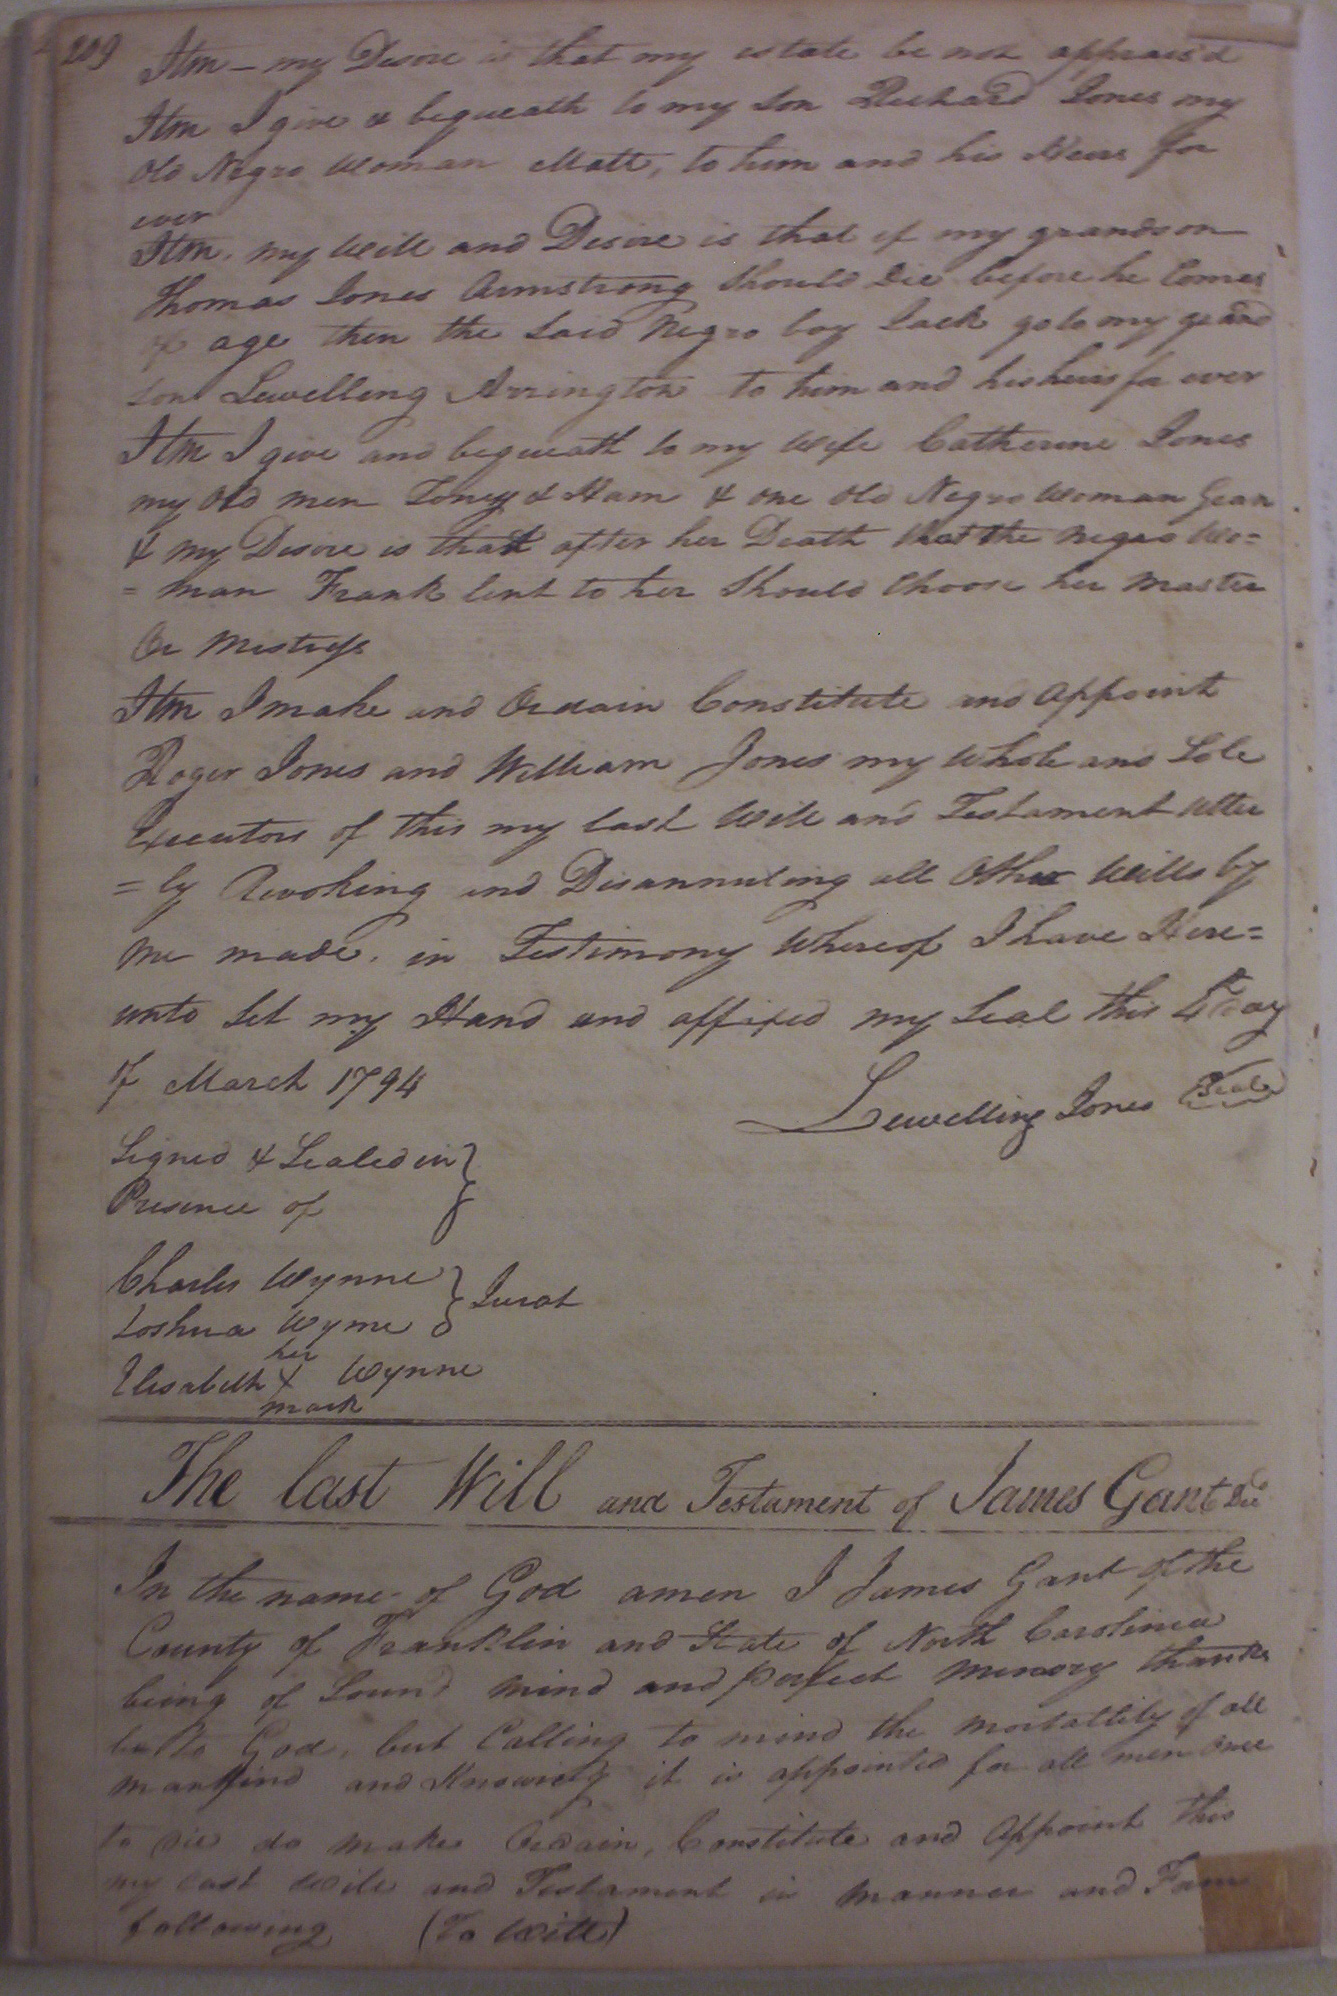 209
Itm – my Desire is that my estate be not appraisd
Itm I give & bequeath to my Son Richard Jones my
Old Negro Woman Matt, to him and his Heirs for
ever
Itm. my Will and Desire is that if my grandson
Thomas Jones Armstrong Should Die before he Comes
of age then the Said Negro boy Jack go to my grand
Son Lewelling Arrington to him and his heirs for ever
Itm I give and bequeath to my Wife Catherine Jones
my Old men Toney & Ham & one Old Negro Woman Jean
& my Desire is that after her Death that the Negro Wo=
= man Frank lent to her Should Choose her Master
Or Mistress
Itm I make and Ordain Constitute and Appoint
Roger Jones and William Jones my Whole and Sole
Executors of this my last Will and Testament Utter
= ly Revoking and Disannuling all Other Wills by
me made. in Testimony Whereof I have Here=
unto Set my Hand and affixed my Seal this 4th Day
of March 1794
Lewelling Jones Seal
Signed & Sealed in }
Presence of
Charles Wynne } Jurat
Joshua Wynne
her
Elisabeth X Wynne
mark
The last Will and Testament of James Gant Decd
In the name of God amen I James Gant of the
County of Franklin and State of North Carolinea
being of Sound Mind and perfect Memory thanks
be to God, but Calling to mind the mortallity of all
mankind and Knowing it is appointed for all men Once
to Die do make Ordain, Constitute and Appoint this
my last Will and Testament in Manner and Form
following (To Witt)